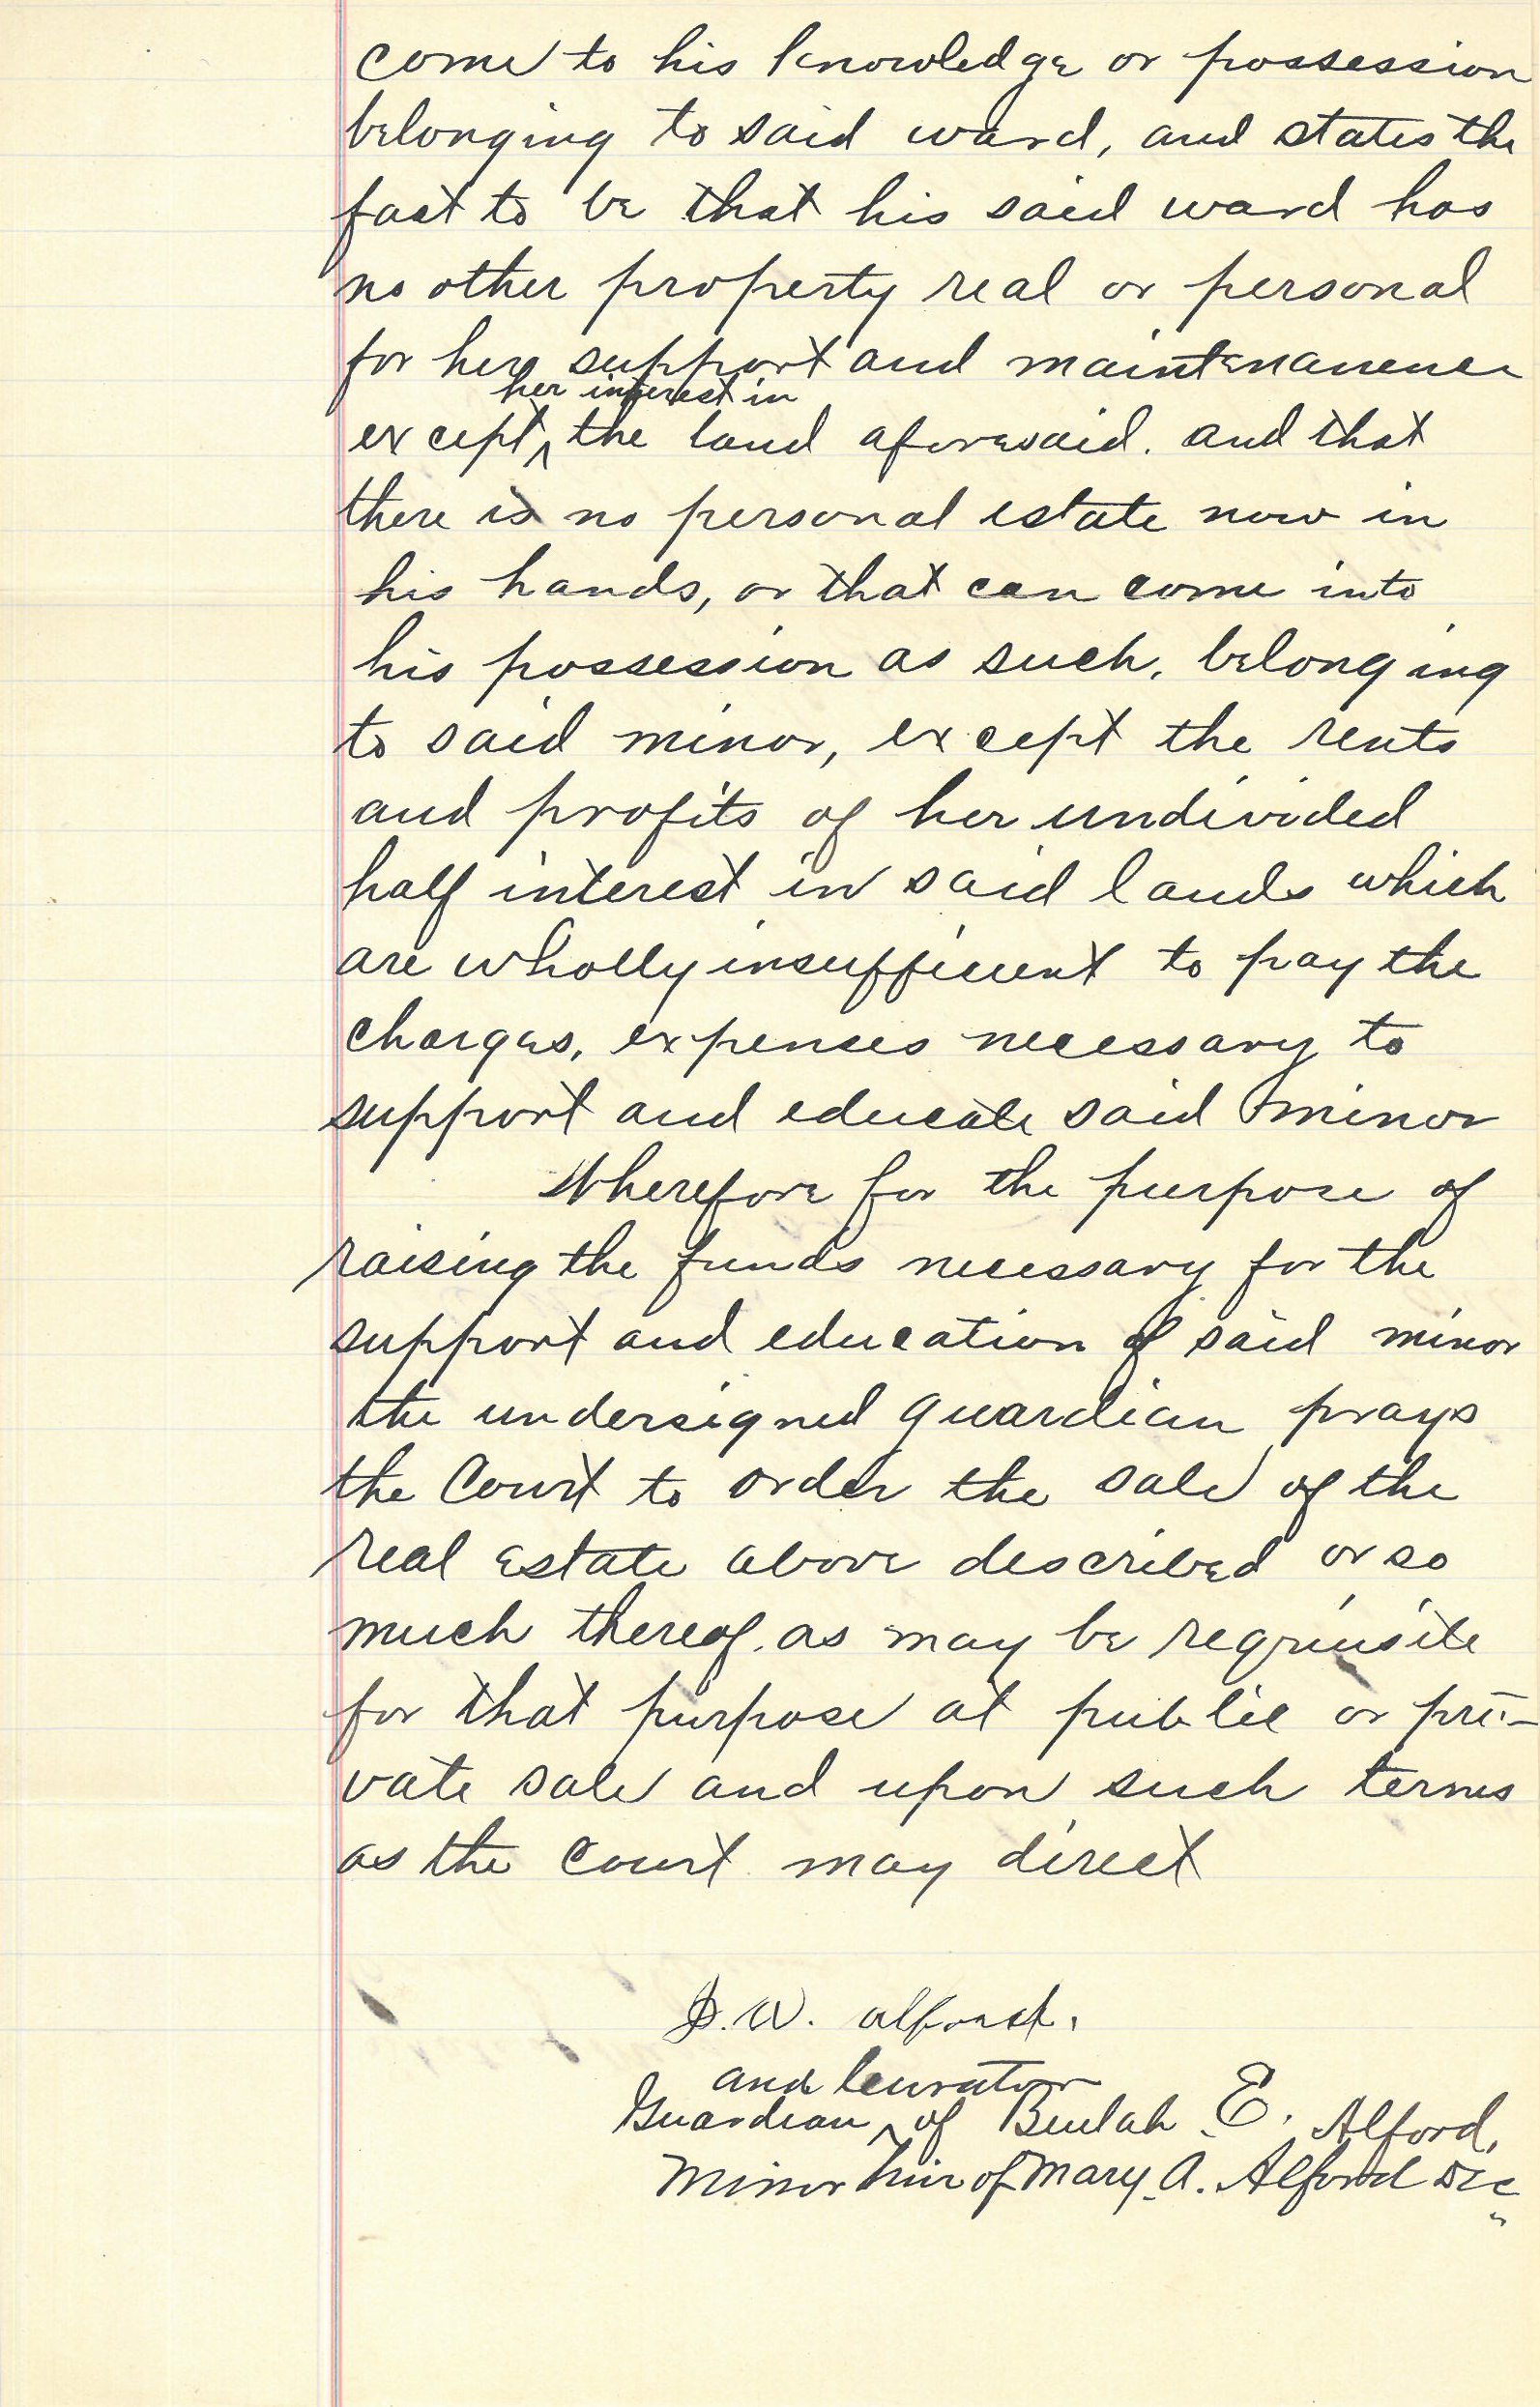 come to his knowledge or possession
belonging to said ward, and states the
fact to be that his said ward has
no other property real or personal
for her support and maintenance
her interest in
except ^ the land aforesaid. and that
there is no personal estate now in
his hands, or that can come into
his possession as such, belonging
to said minor, except the rents
and profits of her undivided
half interest in said lands which
are wholly insufficient to pay the
charges, expenses necessary to
support and educate said minor
Wherefore for the purpose of
raising the funds necessary for the
support and education of said minor
the undersigned guardian prays
the Court to order the sale of the
real estate above described or so
much thereof. as may be requisite
for that purpose at public or pri-
vate sale and upon such terms
as the Court may direct
W. Alford.
and Curator
Guardian ^ of Beulah E. Alford,
Minor heir of Mary A. Alford Dec